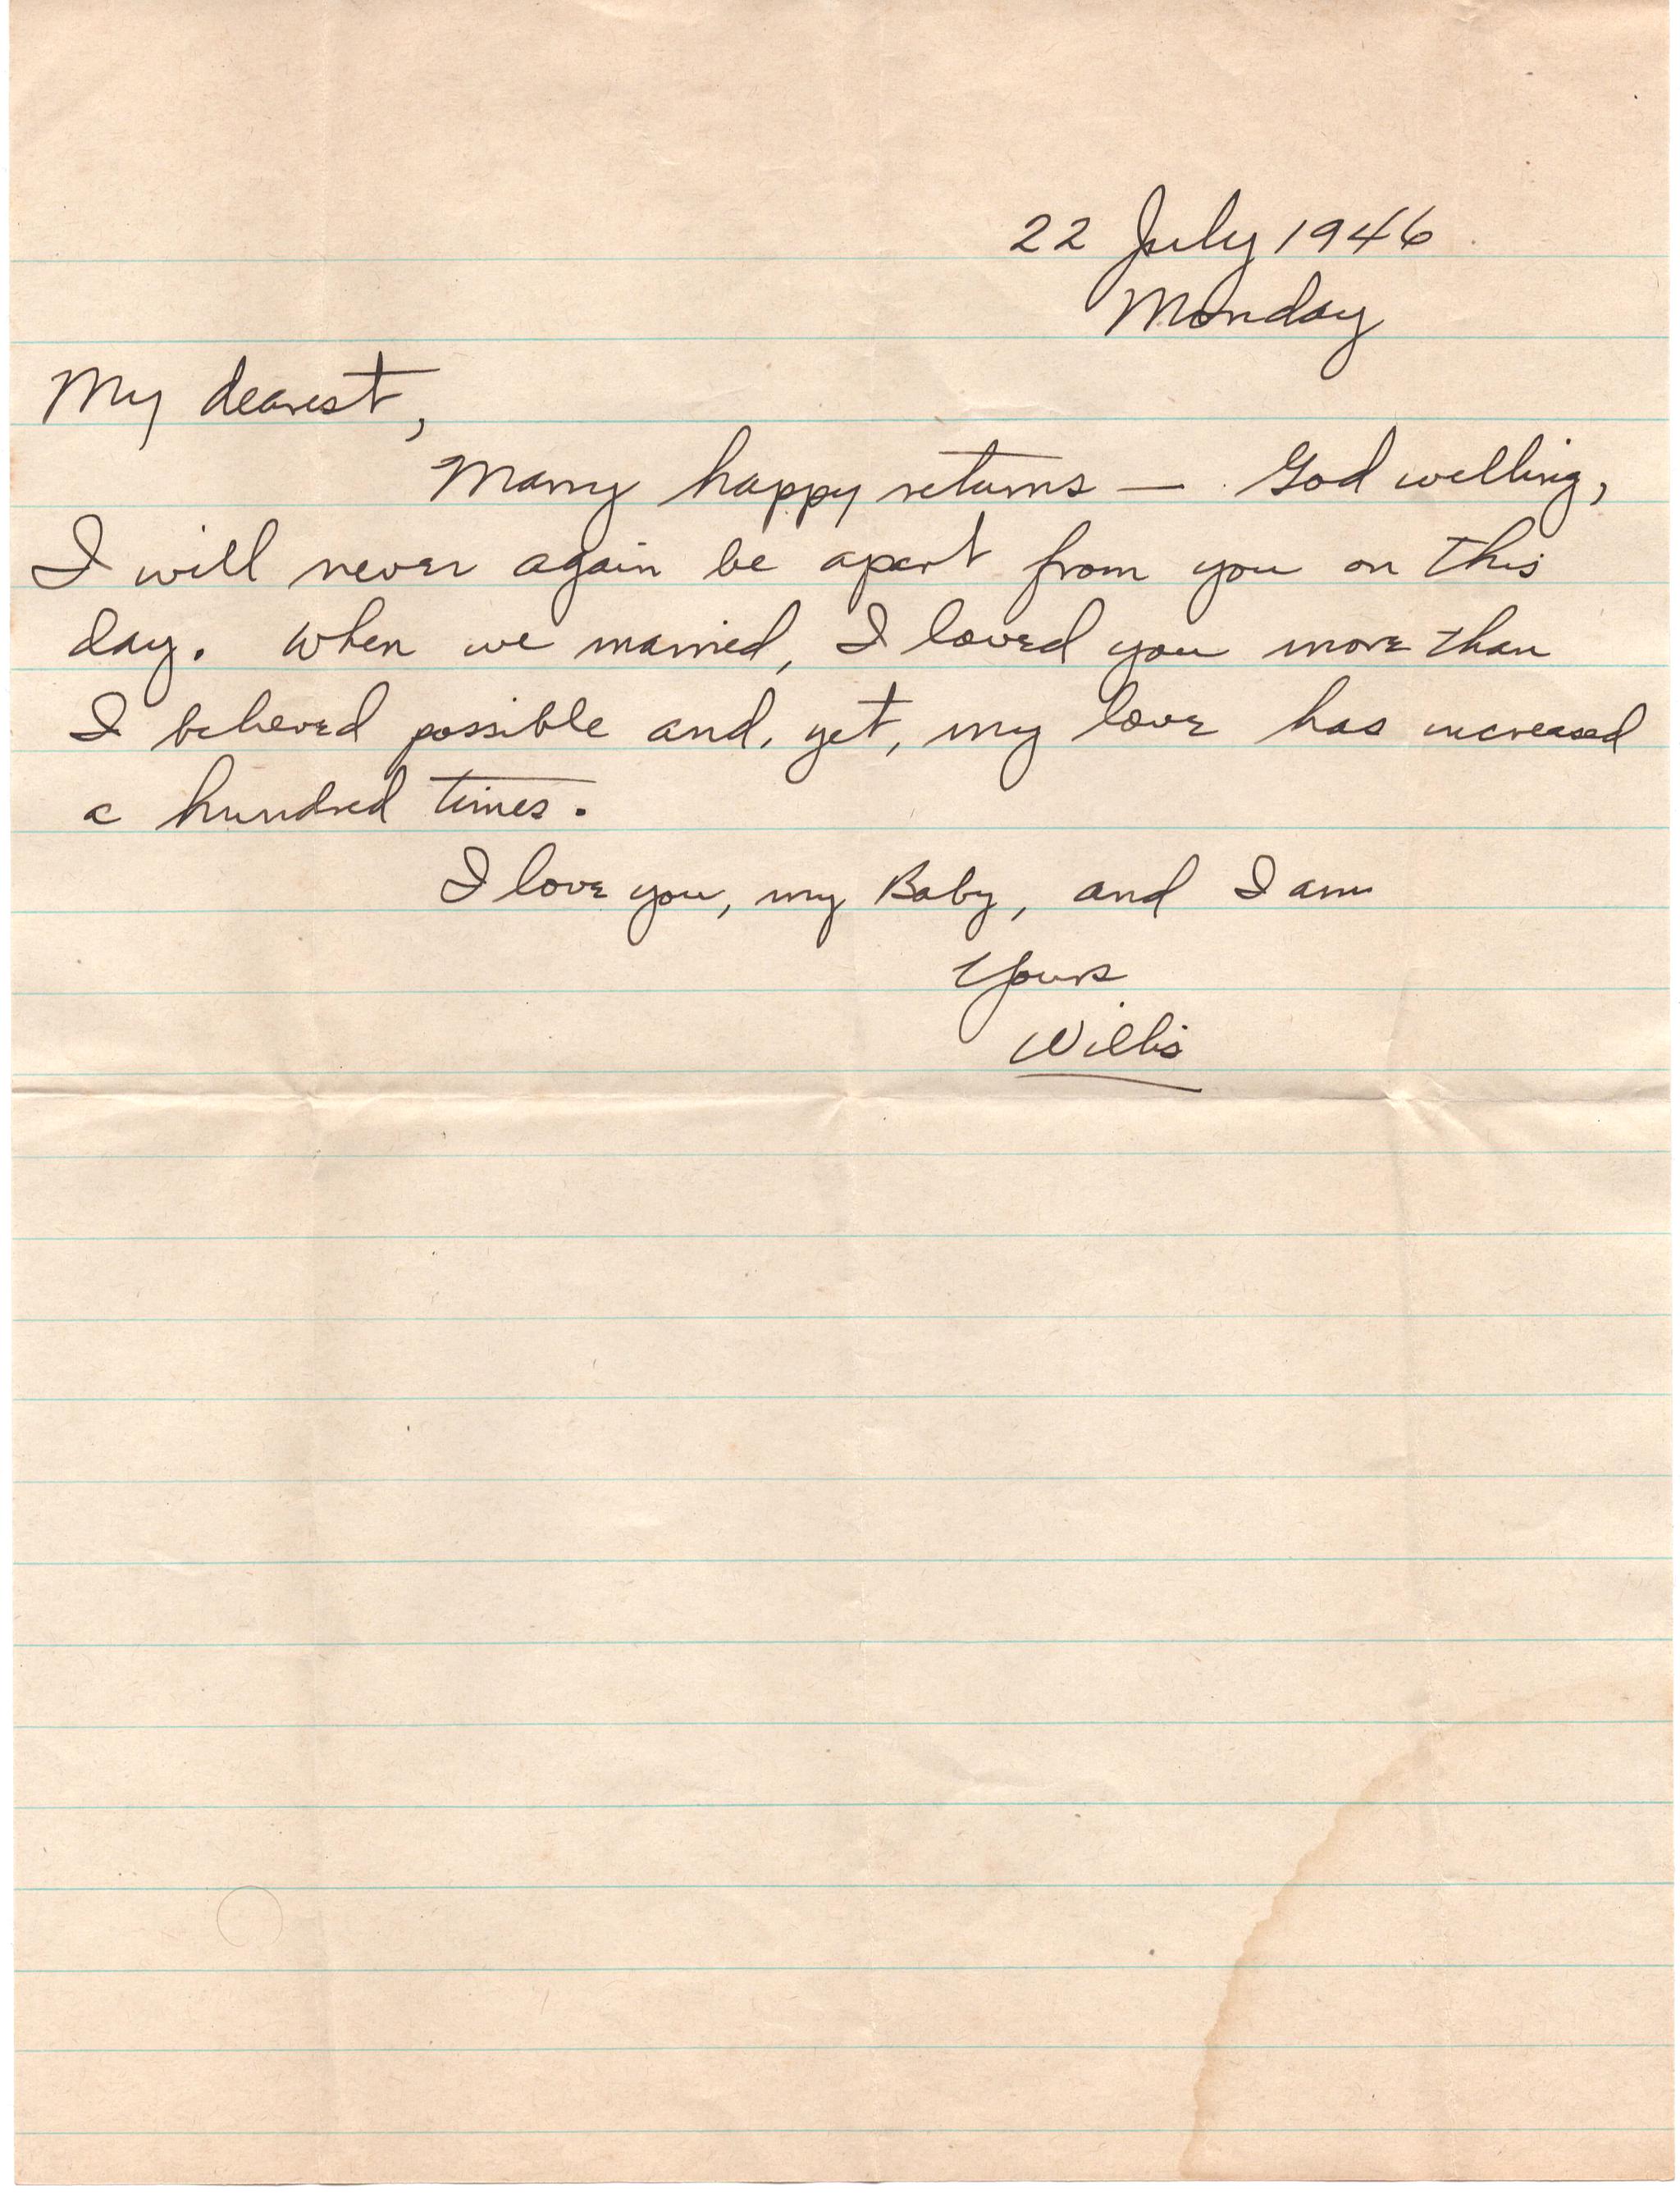 22 July 1946
Monday
My dearest,
Many happy returns — God willing,
I will never again be apart from you on this
day. When we married, I loved you more than
I believed possible and, yet, my love has increased
a hundred times.
I love you, my Baby, and I am
Yours
Willis